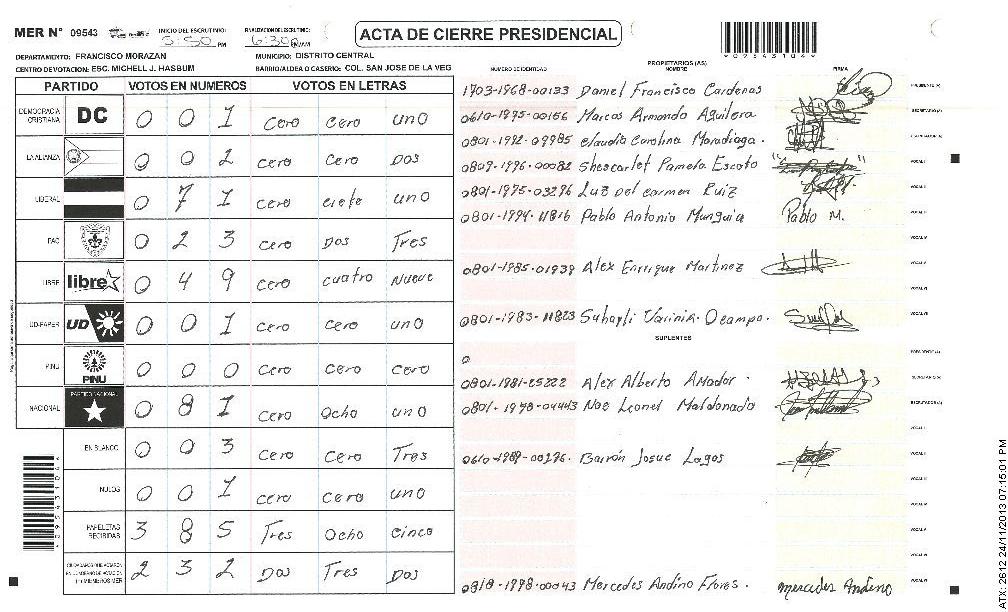 MER N° 09543 INICIO DEL ESCRUTINIO: 5:50 PM FINALIZACION ESCRUTINIO: 6:30 PM ACTA DE CIERRE PRESIDENCIAL
DEPARTAMENTO: FRANCISCO MORAZAN MUNICIPIO: DISTRITO CENTRAL
CENTRO DE VOTACION: ESC. MICHELL J. HASBUM BARRIO/ALDEA O CASERIO: COL. SAN JOSE DE LA VEG
PARTIDO VOTOS EN NUMEROS VOTOS EN LETRAS
DEMOCRACIA CRISTIANA DC 0 0 1 cero cero uno
LA ALIANZA 0 0 2 cero cero Dos
LIBERAL 0 7 1 cero ciete uno
PAC 0 2 3 cero Dos Tres
LIBRE libre 0 4 9 cero cuatro Nueve
UD-FAPER UD 0 0 1 cero cero uno
PINU PINU 0 0 0 cero cero cero
NACIONAL PARTIDO NACIONAL 0 8 1 cero Ocho uno
EN BLANCO 0 0 3 cero cero Tres
NULOS 0 0 1 cero cero uno
PAPELETAS RECIBIDAS 3 8 5 Tres Ocho cinco
CIUDADANOS QUE VOTARON 2 3 2 Dos Tres Dos
NUMERO DE IDENTIDAD PROPIETARIOS (AS) NOMBRE FIRMA
1703-1968-00133 Daniel Francisco Cardenas PRESIDENTE (A)
0610-1975-00156 Marcos Armando Aguilera SECRETARIO (A)
0801-1992-09985 claudia Carolina Maradiaga. ESCRUTADOR (A)
0809-1996-00082 Shescarlet Pamela Escoto VOCAL I
0801-1975-03296 Luz Del carmen Ruiz VOCAL II
0801-1994-11816 Pablo Antonio Munguia Pablo M.
0801-1985-01939 Alex Enrrique Martinez
0801-1983-11823 Suhayli Varinia. Ocampo.
SUPLENTES
PRESIDENTE (A)
0801-1981-25222 Alex Alberto Amador. SECRETARIO (A)
0801-1978-04443 Noe Leonel Maldonado ESCRUTADOR (A)
VOCAL I
0610-1989-00296. Bairón Josue Lagos
0818-1998-00043 Mercedes Andino Flores. mercedes Andino
ATX: 2612 24/11/2013 07:15:01 PM